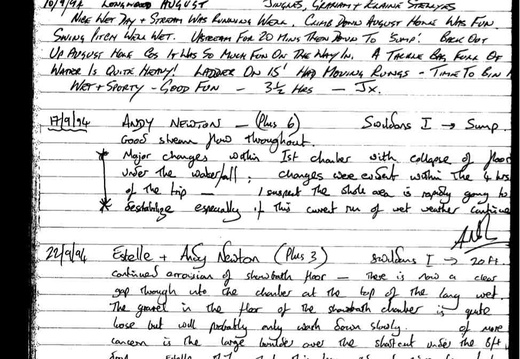 10/9/94 LONGWOOD AUGUST JINGLES, GRAHAM + ELAINE
NICE WET DAY + STREAM WAS RUNNING WELL. CLIMB DOWN AUGUST HOLE WAS FUN
SWING PITCH WELL WET. UPSTREAM FOR 20 MINS THEN DOWN TO SUMP! BACK OUT
UP AUGUST HOLE COS IT WAS SO MUCH FUN ON THE WAY IN. A TACKLE BAG FULL OF
WATER IS QUITE HEAVY! LADDER ON 15' HAD MOVING RUNGS - TIME TO BIN IT
WET + SPORTY - GOOD FUN - 3½ HRS - JX.
17/9/94 ANDY NEWTON - (Plus 6) Swildons I → Sump.
Good stream flow throughout.
* Major changes within 1st chamber with collapse of floor
under the waterfall; changes were evident within the 4 hrs
of the trip - I suspect the whole area is rapidly going to
* destabilize especially if this current run of wet weather continues
22/9/94 Estelle + Andy Newton (Plus 3) Swildons I → 20 ft.
continued erosion of showerbath floor - there is now a clear
gap through into the chamber at the top of the long wet.
The gravel in the floor of the showerbath chamber is quite
loose but will probably only wash down slowly. of more
concern is the large boulder over the shortcut under the 8ft
Estelle